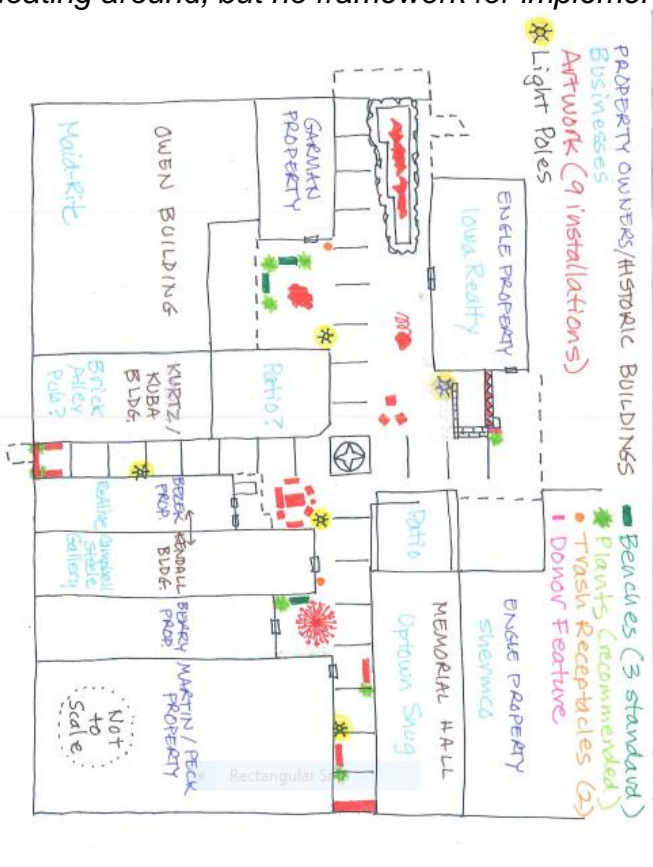 floating around, but no framework for implemen
PROPERTY OWNERS/HISTORIC BUILDINGS
Businesses
Artwork (9 installations)
Light Poles
Benches (3 standard)
Plants (recommended)
Trash Receptacles (2)
Donor Feature
GARMAN
PROPERTY
OWEN BUILDING
Maid-Rite
ENGLE PROPERTY
Iowa Realty
Patio?
KURTZ/
KUBA
BLDG.
Brick
Alley
Pub?
Patio
BEZEK
PROP.
KENDALL
BLDG.
Campbell
Steele
Gallery
BERRY
PROP.
MARTIN/PECK
PROPERTY
MEMORIAL HALL
Uptown Snug
ENGLE PROPERTY
Shermco
Not
to
Scale
Rectangular S